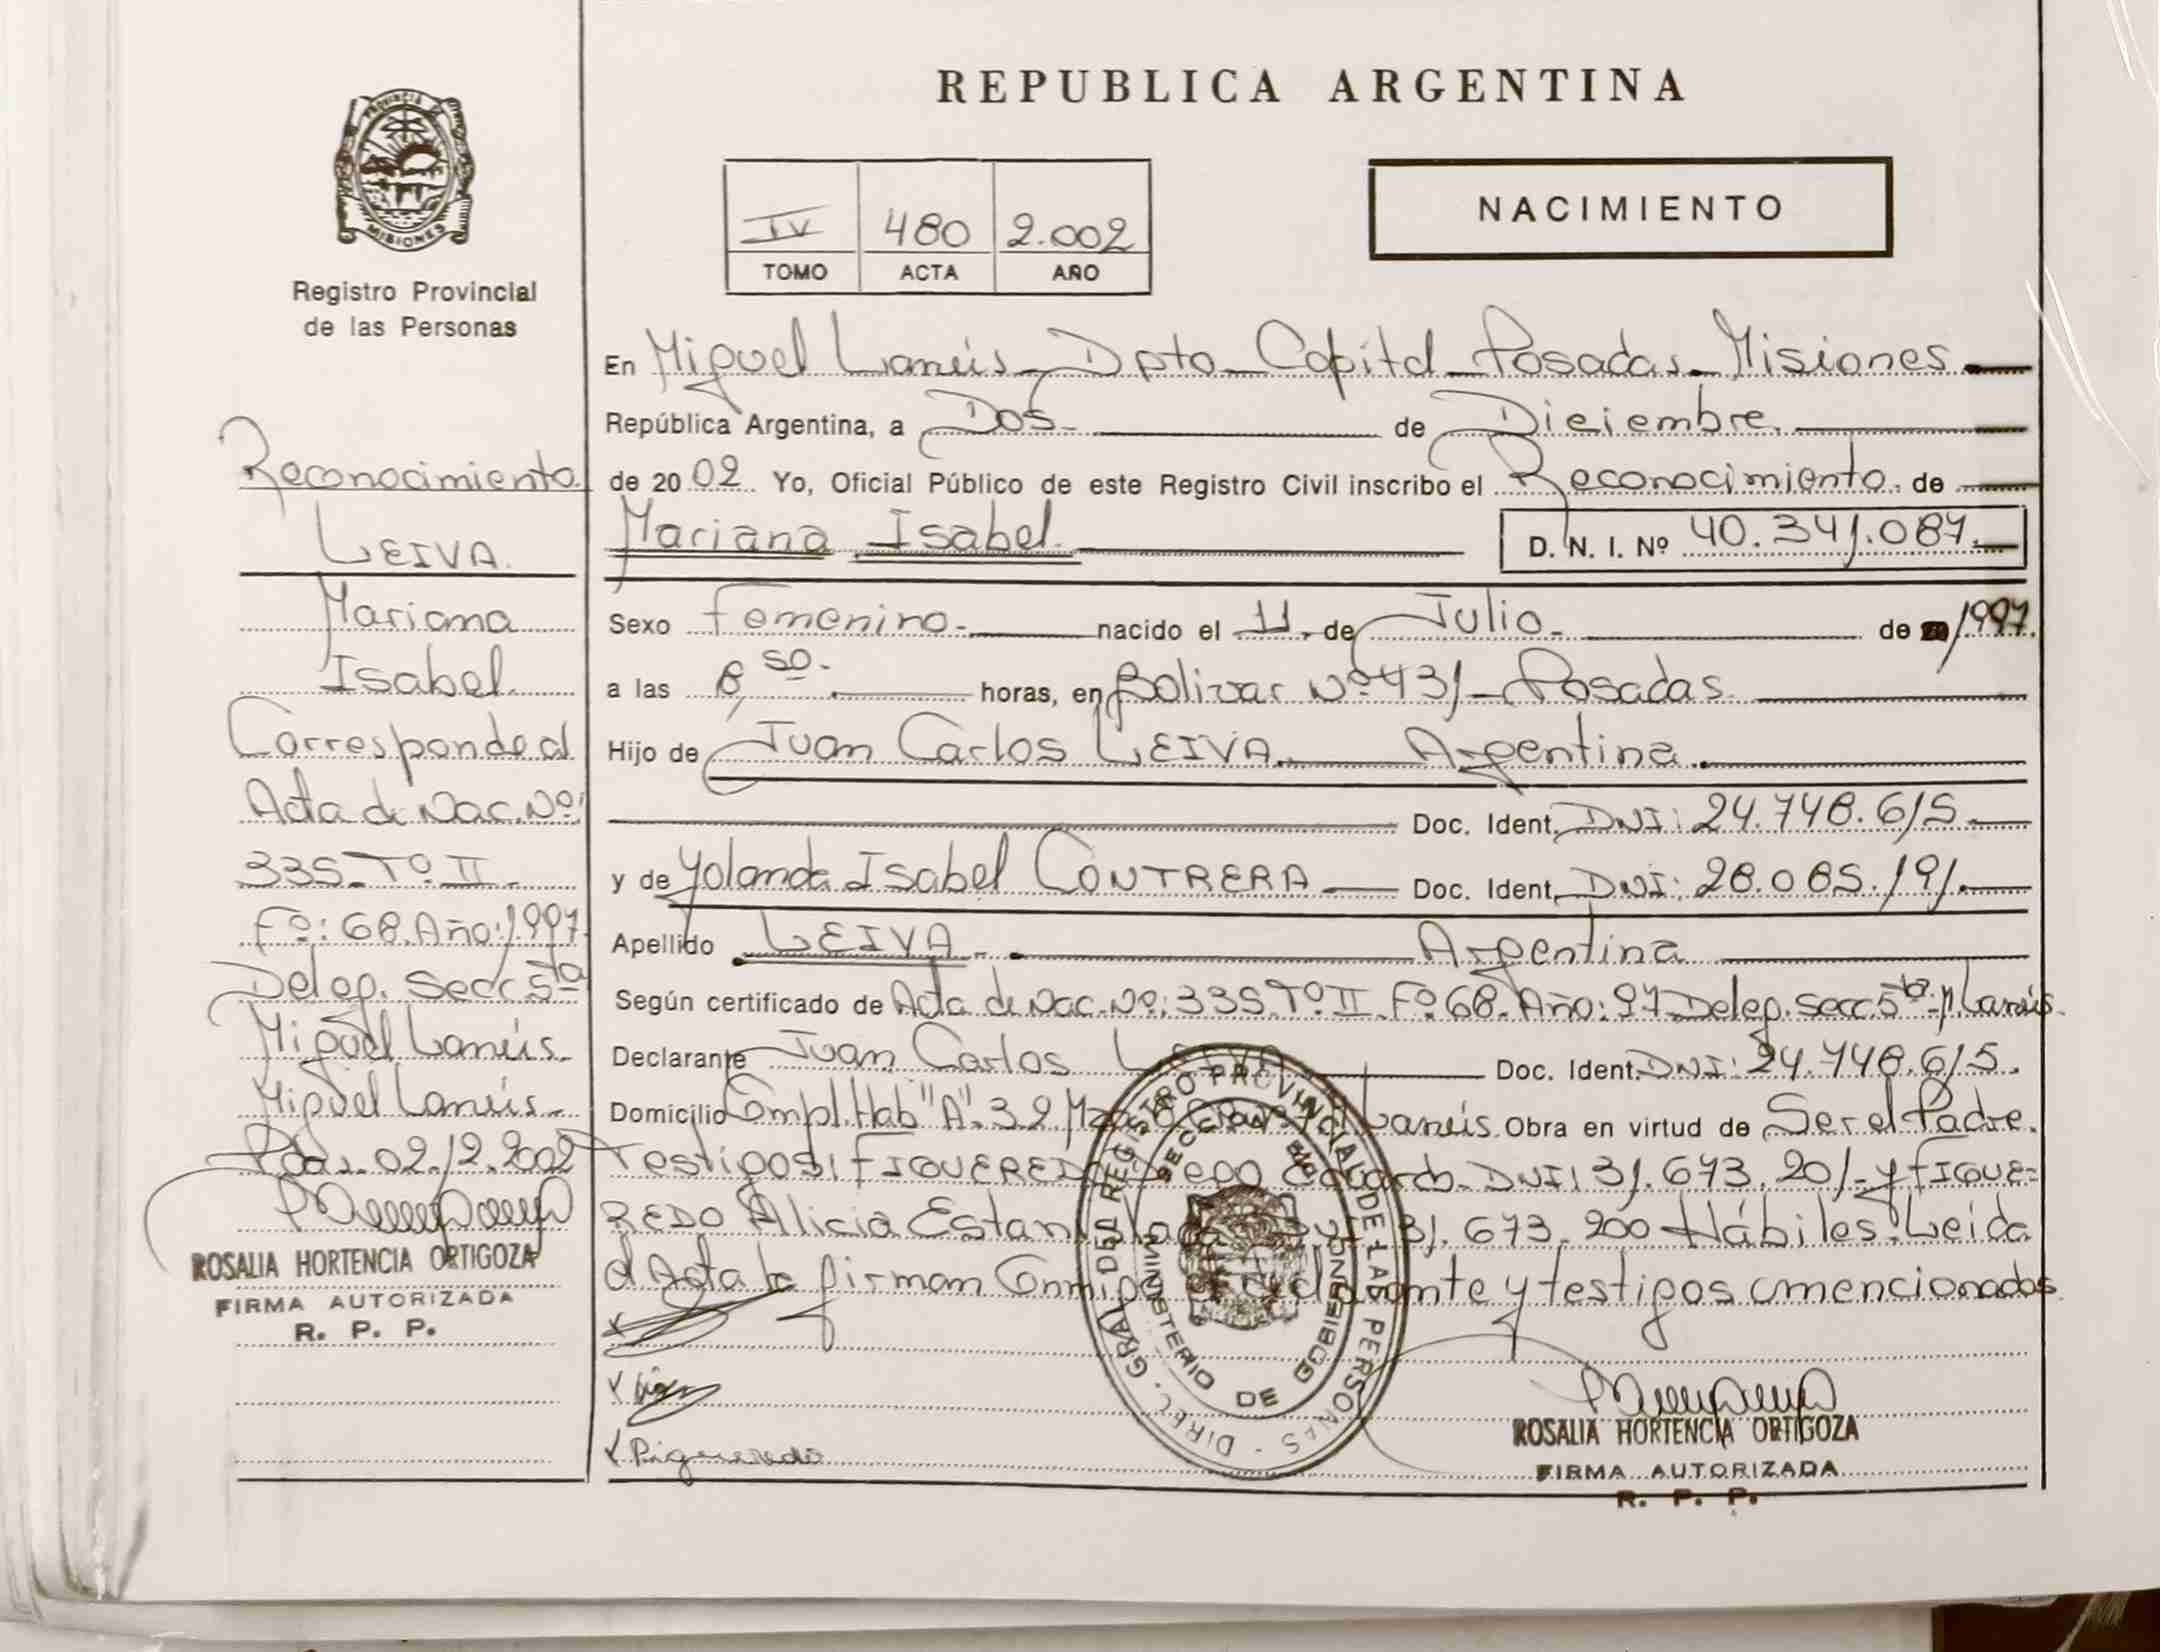 REPUBLICA ARGENTINA
PROVINCIA DE
MISIONES
Registro Provincial
de las Personas
IV 480 2.002
TOMO ACTA AÑO
NACIMIENTO
Reconocimiento
LEIVA.
Mariana
Isabel.
Corresponde al
Acta de Nac. Nº:
335. Tº. II.
Fº: 68. Año: 1997.
Deleg. Secc 5ta
Miguel Lanús.
Miguel Lanús.
Pdas. 02.12.2002
ROSALIA HORTENCIA ORTIGOZA
FIRMA AUTORIZADA
R. P. P.
En Miguel Lanús - Dpto - Capital - Posadas - Misiones
República Argentina, a Dos de Diciembre.
de 2002. Yo, Oficial Público de este Registro Civil inscribo el Reconocimiento. de
Mariana Isabel. D. N. I. Nº 40.341.087.
Sexo Femenino. nacido el 11. de Julio. de 1997.
a las 8,50. horas, en Bolivar Nº 431 - Posadas.
Hijo de Juan Carlos LEIVA. Argentina.
Doc. Ident. DNI: 24.748.615.
y de Yolanda Isabel CONTRERA Doc. Ident. DNI: 28.085.191.
Apellido LEIVA. Argentina
Según certificado de Acta de Nac. Nº: 335. Tº II. Fº 68. Año: 97 Deleg. Secc 5ta M Lanús.
Declarante Juan Carlos LEIVA Doc. Ident. DNI: 24.748.615.
Domicilio Compl. Hab "A". 32 Lanús. Obra en virtud de Ser el Padre.
Testigos: FIGUEREDO Diego Eduardo. DNI: 31.673.201 - y FIGUE=
REDO Alicia 31.673.200 Hábiles. Leida
el Acta la firman Conmigo el declarante y testigos mencionados
Figueredo
DIREC. GRAL. DEL REGISTRO PROVINCIAL DE LAS PERSONAS
SECCION 5ta
MINISTERIO DE GOBIERNO
ROSALIA HORTENCIA ORTIGOZA
FIRMA AUTORIZADA
R. P. P.